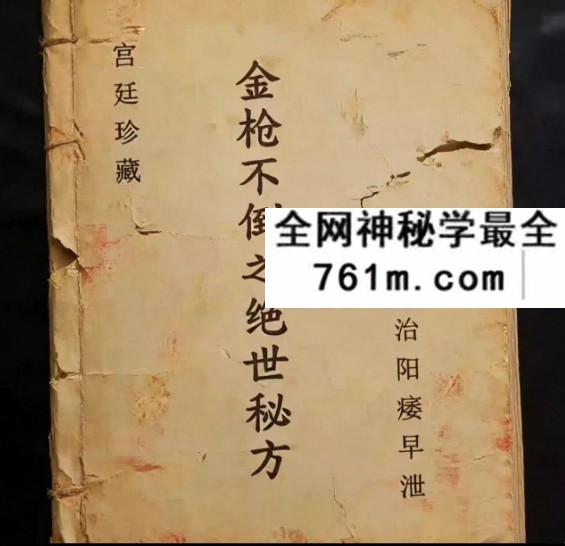 宫廷珍藏
金枪不倒之绝世秘方
全网神秘学最全
761m.com
治阳痿早泄